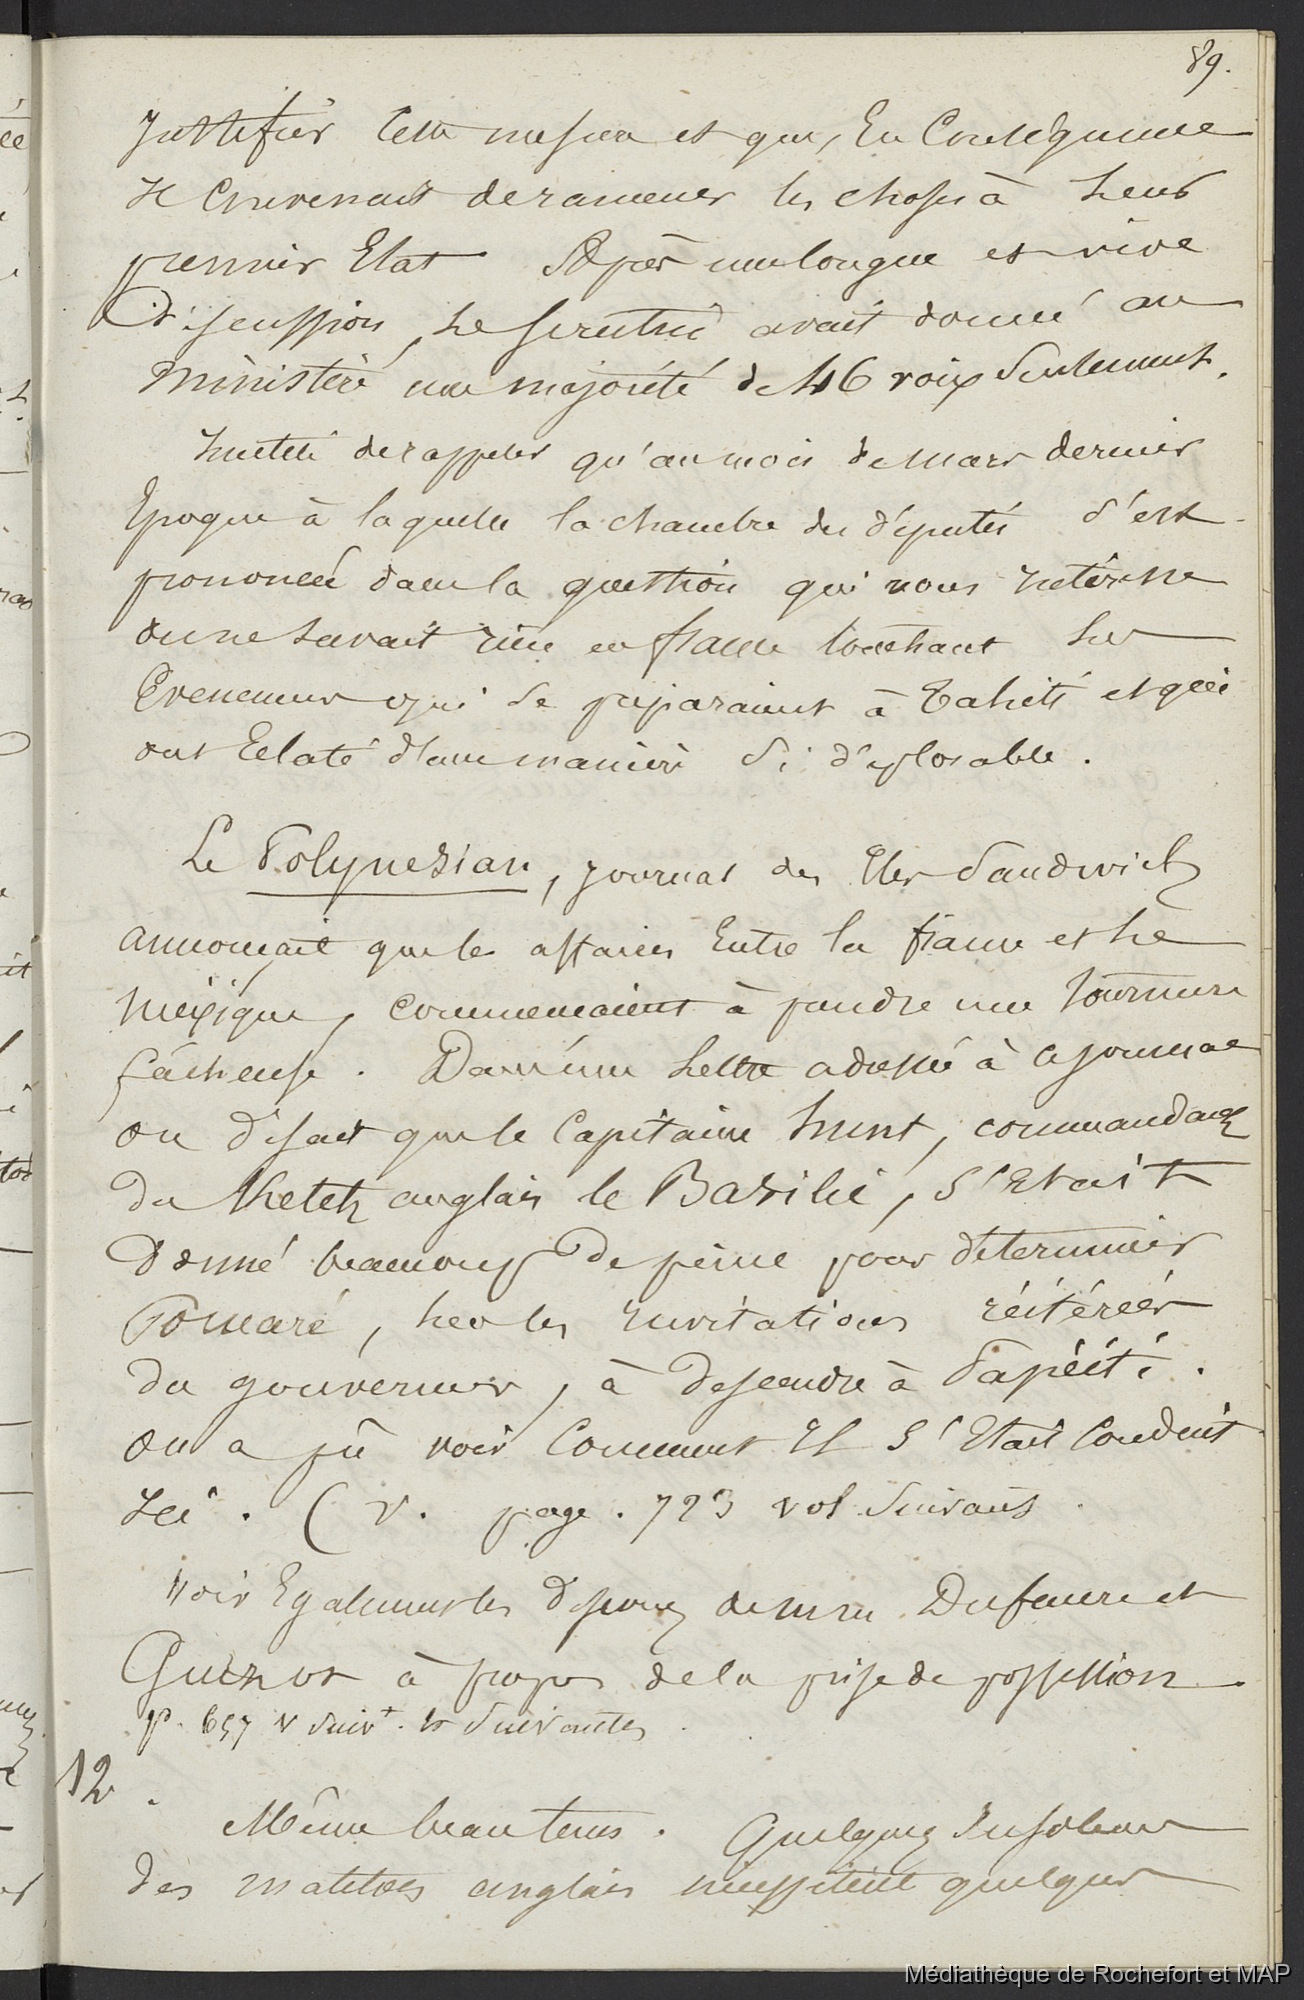 89.
Justifier cette mesure et que, En Conséquence
Il Convenait de ramener les choses à leur
premier Etat Après une longue et vive
Discussion, le scrutin avait donné au
Ministère une majorité de 46 voix seulement.
Inutile de rappeler qu'au mois de Mars dernier
Epoque à laquelle la chambre des députés s'est
prononcée dans la question qui nous intéresse
on ne savait rien en france touchant les
Evenemens qui se préparaient à Tahiti et qui
ont Eclaté d'une manière si déplorable.
Le Polynesian, journal des Iles Sandwich
annonçait que les affaires Entre la france et le
Mexique, commençaient à prendre une tournure
fâcheuse. Dans une lettre adressée à ce journal
on disait que le Capitaine Hunt, commandant
du Ketch anglais le Basilic, s'Etait
Donné beaucoup de peine pour déterminer
Pomaré, sur les invitations réitérées
du gouverneur, à descendre à Papéiti.
on a pû voir Comment Il s'Etait Conduit
Ici. (v. page. 723 vol suivant
Voir Egalement les discours de mm Dufaure et
Guizot à propos de la prise de possession.
p. 657 v suivt. et suivantes.
12.
Même beau tems. Quelques Insolences
des matelots anglais nécessitent quelques
Médiathèque de Rochefort et MAP